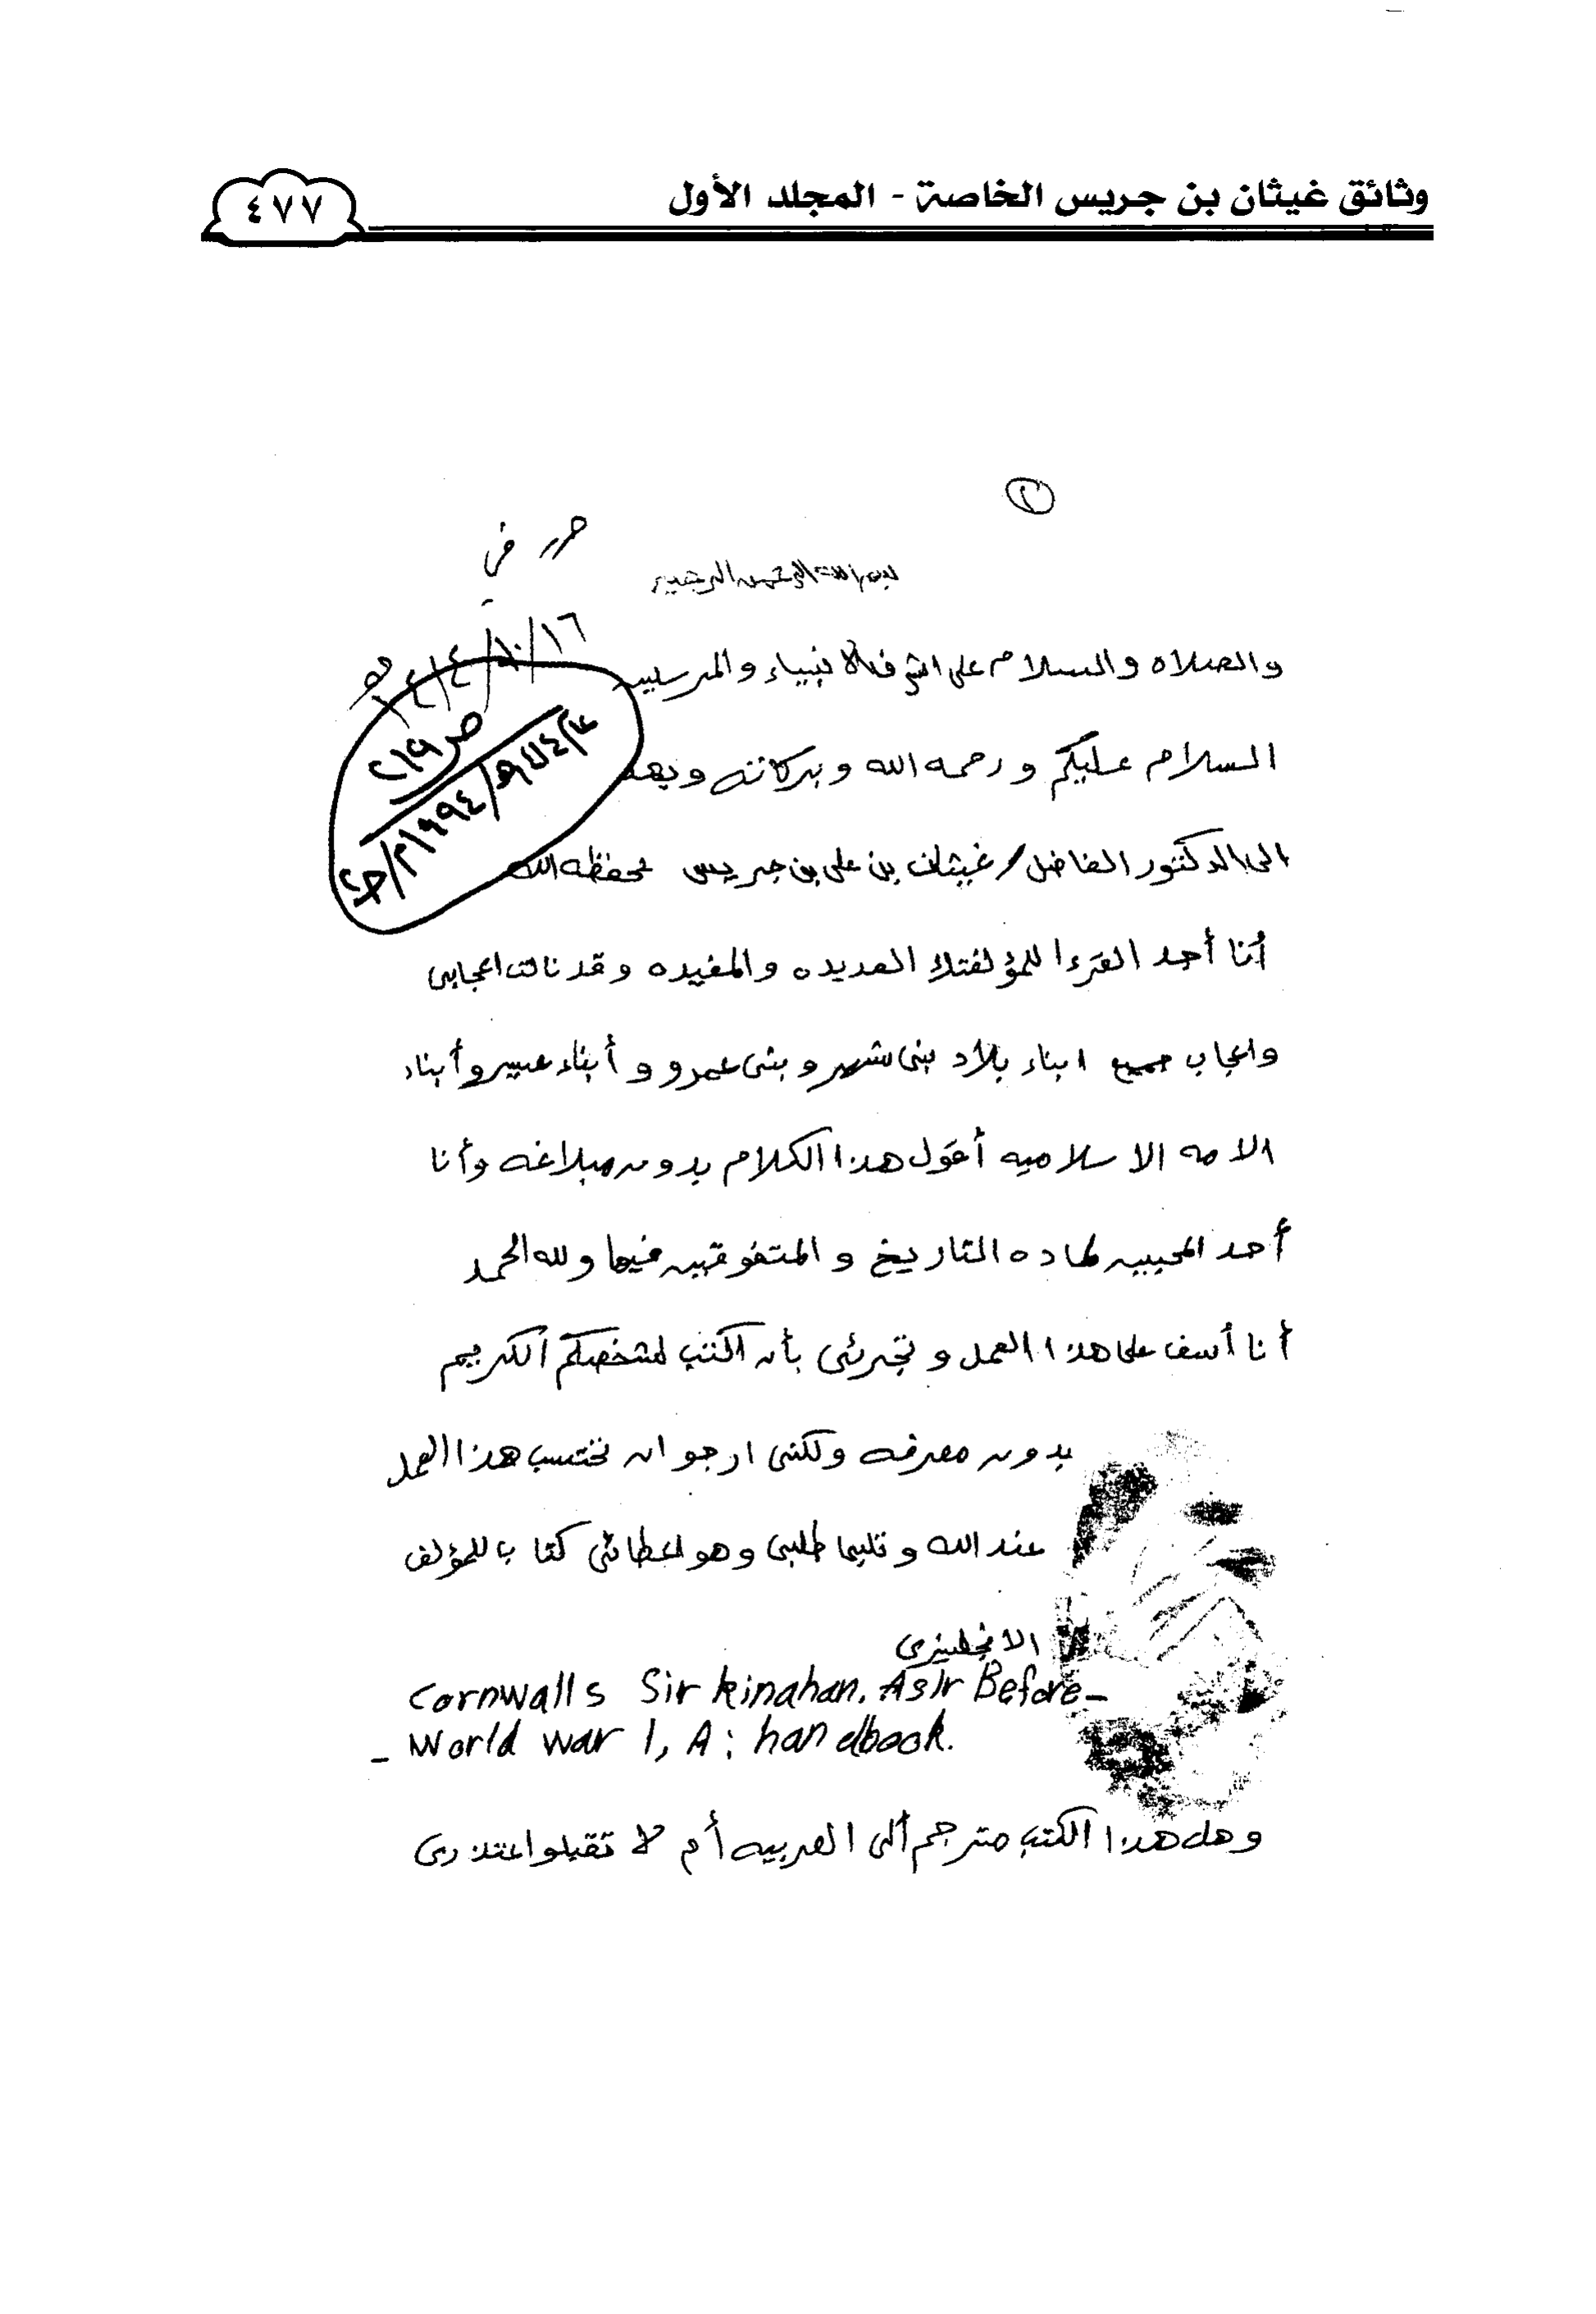 وثائق غيثان بن جريس الخاصة - المجلد الأول
٤٧٧
٢
حرر في
١٦/١٠/١٤١٤هـ
بسم الله الرحمن الرحيم
والصلاه والسلام على اشرف الانبياء والمرسلين
السلام عليكم ورحمه الله وبركاته وبعد
ص٢١٩
الى الدكتور الفاضل / غيثان بن علي بن جريس يحفظه الله
أنا أحد القرءا للمؤلفتك العديده والمفيده وقد نالت اعجابي
واعجاب جميع ابناء بلاد بني شهر وبني عمرو وأبناء عسير وأبناء
الامه الاسلاميه أقول هذا الكلام بدون مبلاغه وأنا
أحد المحبين لماده التاريخ والمتفوقين فيها ولله الحمد
أنا أسف على هذا العمل وتجرئي بأن اكتب لشخصكم الكريم
بدون معرفه ولكني ارجو ان تحتسب هذا العمل
عند الله وتلبيا طلبي وهو اعطائي كتاب للمؤلف
الانجليزي
Cornwalls Sir kinahan. Asir Before-
- World war I, A: handbook.
وهل هذا الكتب مترجم ألى العربيه أم لا تقبلو اعتذاري